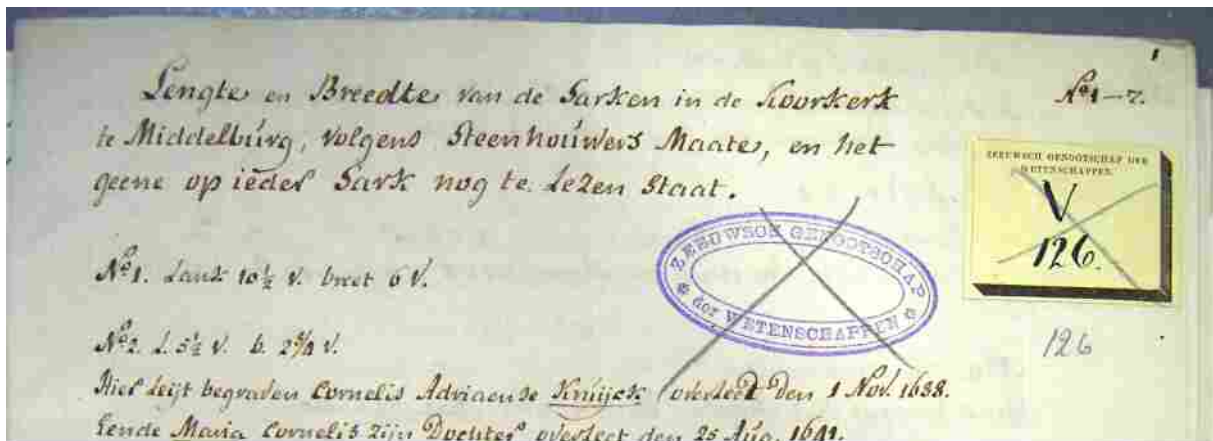 1
Lengte en Breedte van de Sarken in de Koorkerk
Nº 1–7.
te Middelburg, volgens Steenhouwers Maate, en het
geene op ieder Sark nog te lezen Staat.
ZEEUWSCH GENOOTSCHAP DER
WETENSCHAPPEN.
V
126.
ZEEUWSCH GENOOTSCHAP
der WETENSCHAPPEN
Nº 1. Lank 10½ v. breet 6 v.
126
Nº 2. L. 5½ v. b. 2¾ v.
Hier Leijt begraven Cornelis Adriaense Kruijck overleet den 1 Nov. 1638.
Eende Maria Cornelis Zijn Dochter overleet den 25 Aug. 1641.